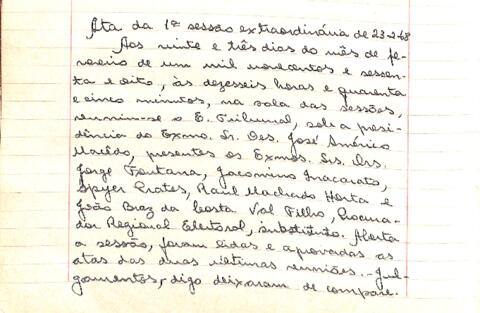 Ata da 1ª sessão extraordinária de 23-2-68
Aos vinte e três dias do mês de fe-
vereiro de um mil novecentos e sessen-
ta e oito, às dezesseis horas e quarenta
e cinco minutos, na sala das sessões,
reuniu-se o E. Tribunal, sob a presi-
dência do Exmo. Sr. Des. José Américo
Macêdo, presentes os Exmos. Srs. Drs.
Jorge Fontana, Jacomino Inacarato,
Spyer Prates, Raul Machado Horta e
João Braz da Costa Val Filho, Procura-
dor Regional Eleitoral, substituto. Aberta
a sessão, foram lidas e aprovadas as
atas das duas últimas reuniões. - Jul-
gamentos, digo deixaram de compare-